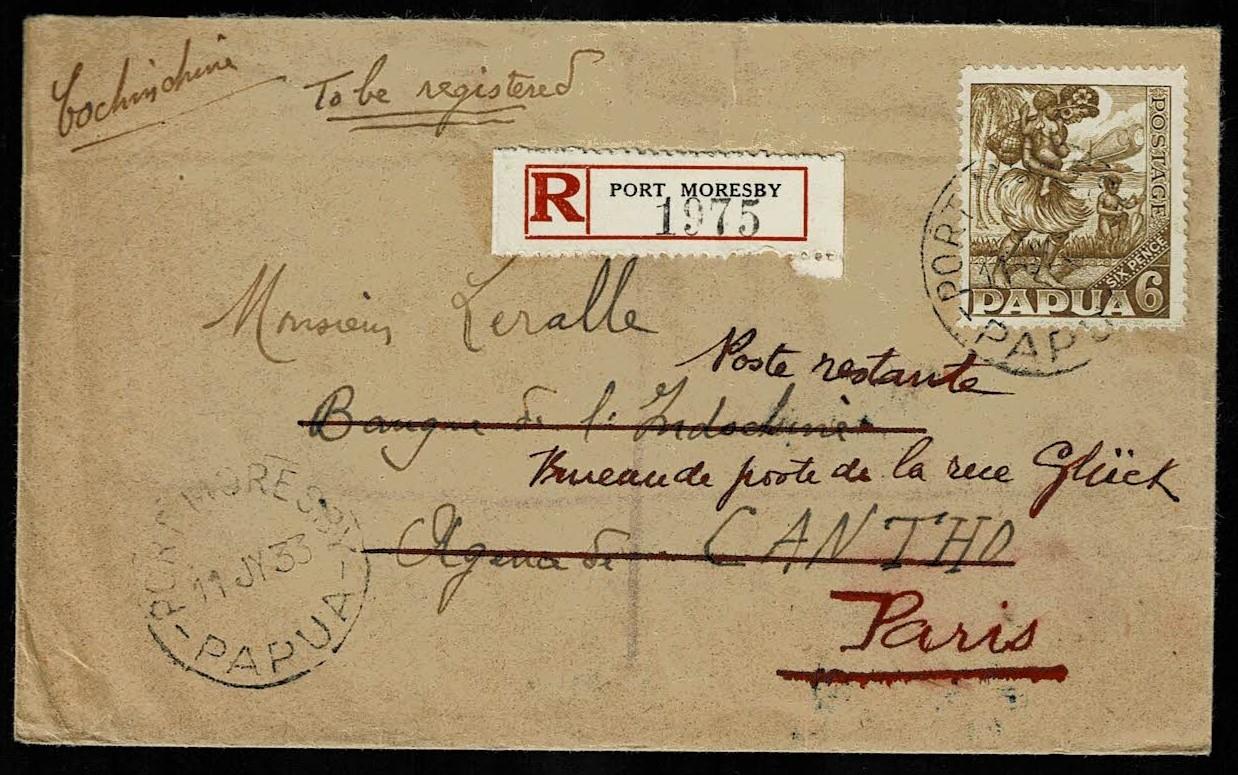 Cochinchine
To be registered
R PORT MORESBY
1975
POSTAGE
SIX PENCE
PAPUA 6
PORT
PAPU
Monsieur Leralle
Poste restante
Banque de l'Indochine
Bureau de poste de la rue Glück
Agence de CANTHO
Paris
PORT MORESBY
11 JY 33
-PAPUA-